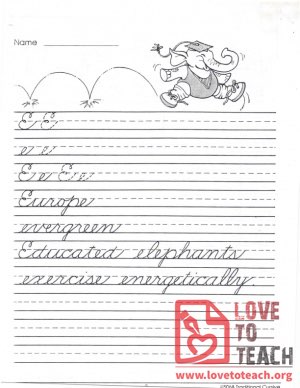 Name
E E
e e
E e E e
Europe
evergreen
Educated elephants
exercise energetically.
LOVE
TO
TEACH
www.lovetoteach.org